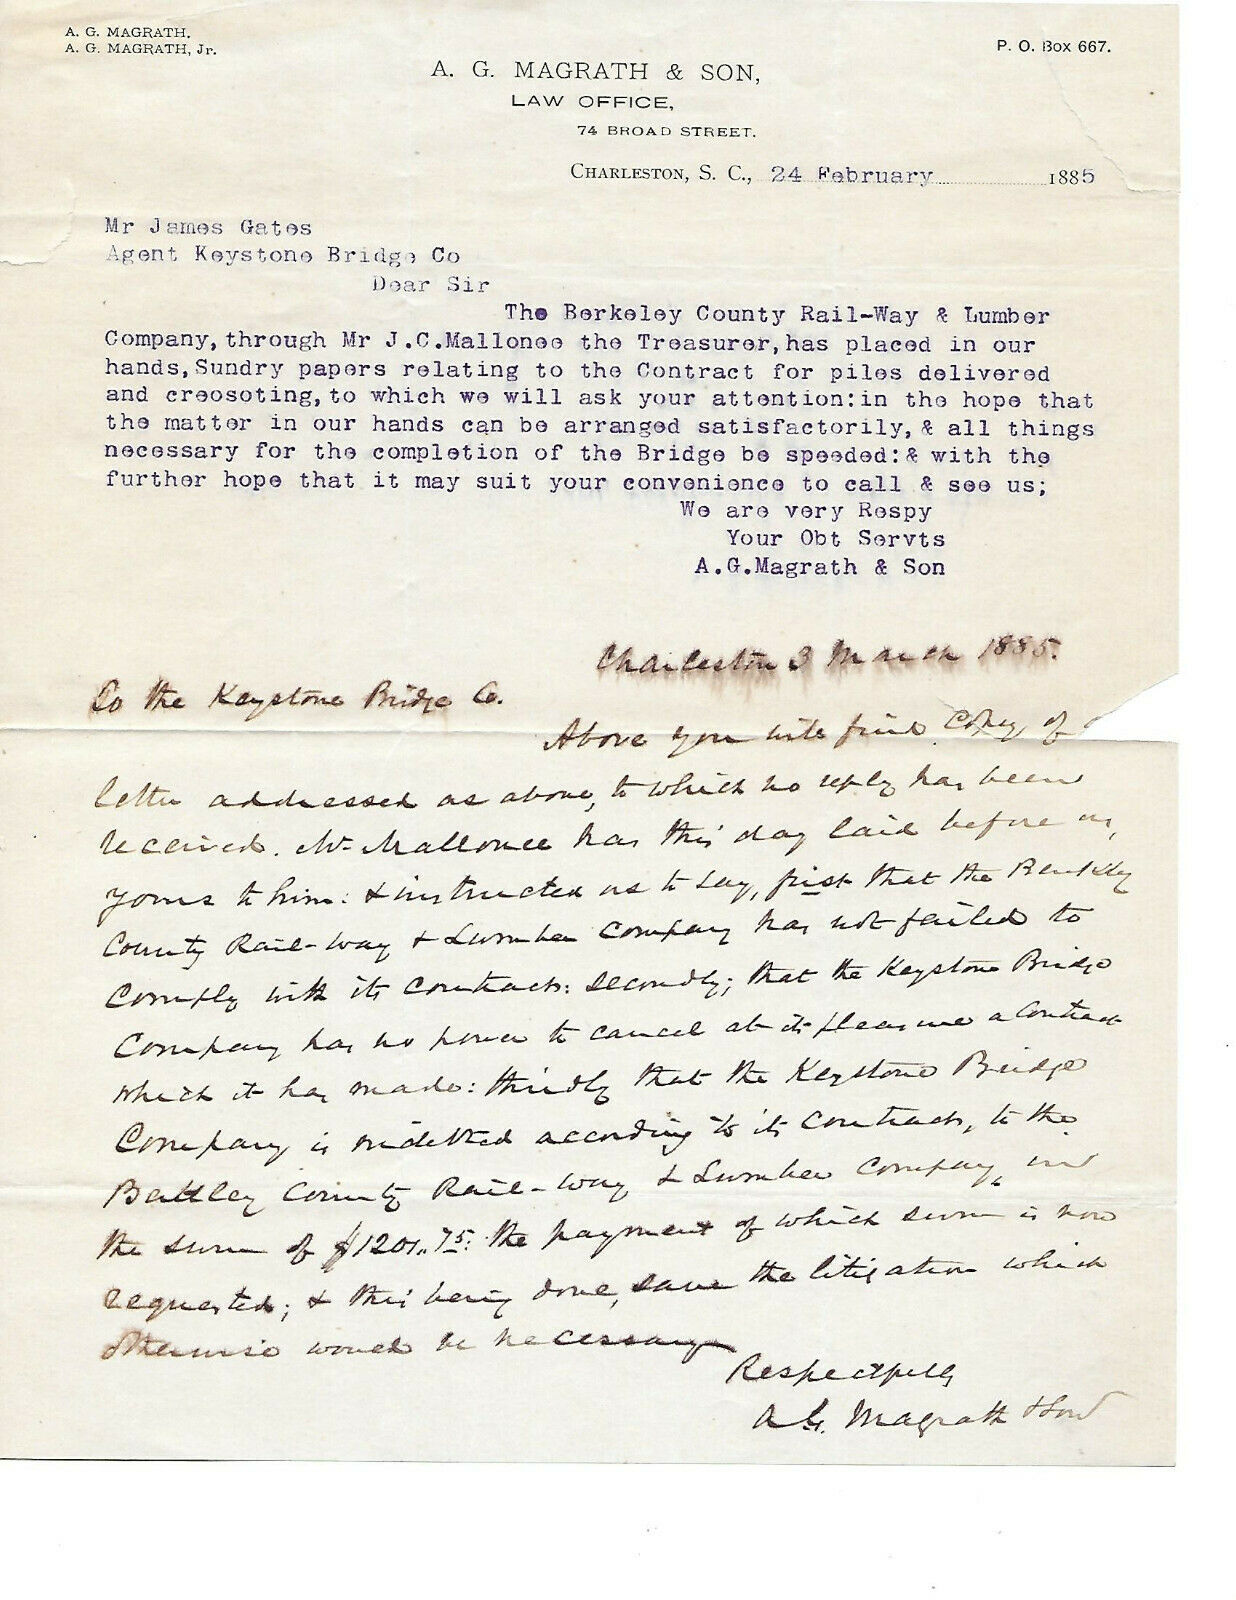 A. G. MAGRATH.
A. G. MAGRATH, Jr.
P. O. Box 667.
A. G. MAGRATH & SON,
LAW OFFICE,
74 BROAD STREET.
CHARLESTON, S. C., 24 February 1885
Mr James Gates
Agent Keystone Bridge Co
Dear Sir
The Berkeley County Rail-Way & Lumber
Company, through Mr J.C.Mallonee the Treasurer, has placed in our
hands, Sundry papers relating to the Contract for piles delivered
and creosoting, to which we will ask your attention: in the hope that
the matter in our hands can be arranged satisfactorily, & all things
necessary for the completion of the Bridge be speeded: & with the
further hope that it may suit your convenience to call & see us;
We are very Respy
Your Obt Servts
A.G.Magrath & Son
Charleston 3 March 1885.
To the Keystone Bridge Co.
Above you will find Copy of
letter addressed as above, to which no reply has been
received. Mr Mallonee has this day laid before us,
yours to him: & instructed us to say, first that the Berkley
County Rail-way & Lumber Company has not failed to
Comply with its contract: Secondly; that the Keystone Bridge
Company has no power to cancel at its pleasure a Contract
which it has made: thirdly that the Keystone Bridge
Company is indebted according to its contract, to the
Berkley County Rail-way & Lumber Company, in
the sum of $1201.75: the payment of which sum is now
requested; & this being done, save the litigation which
otherwise would be necessary
Respectfully
A G. Magrath & Son